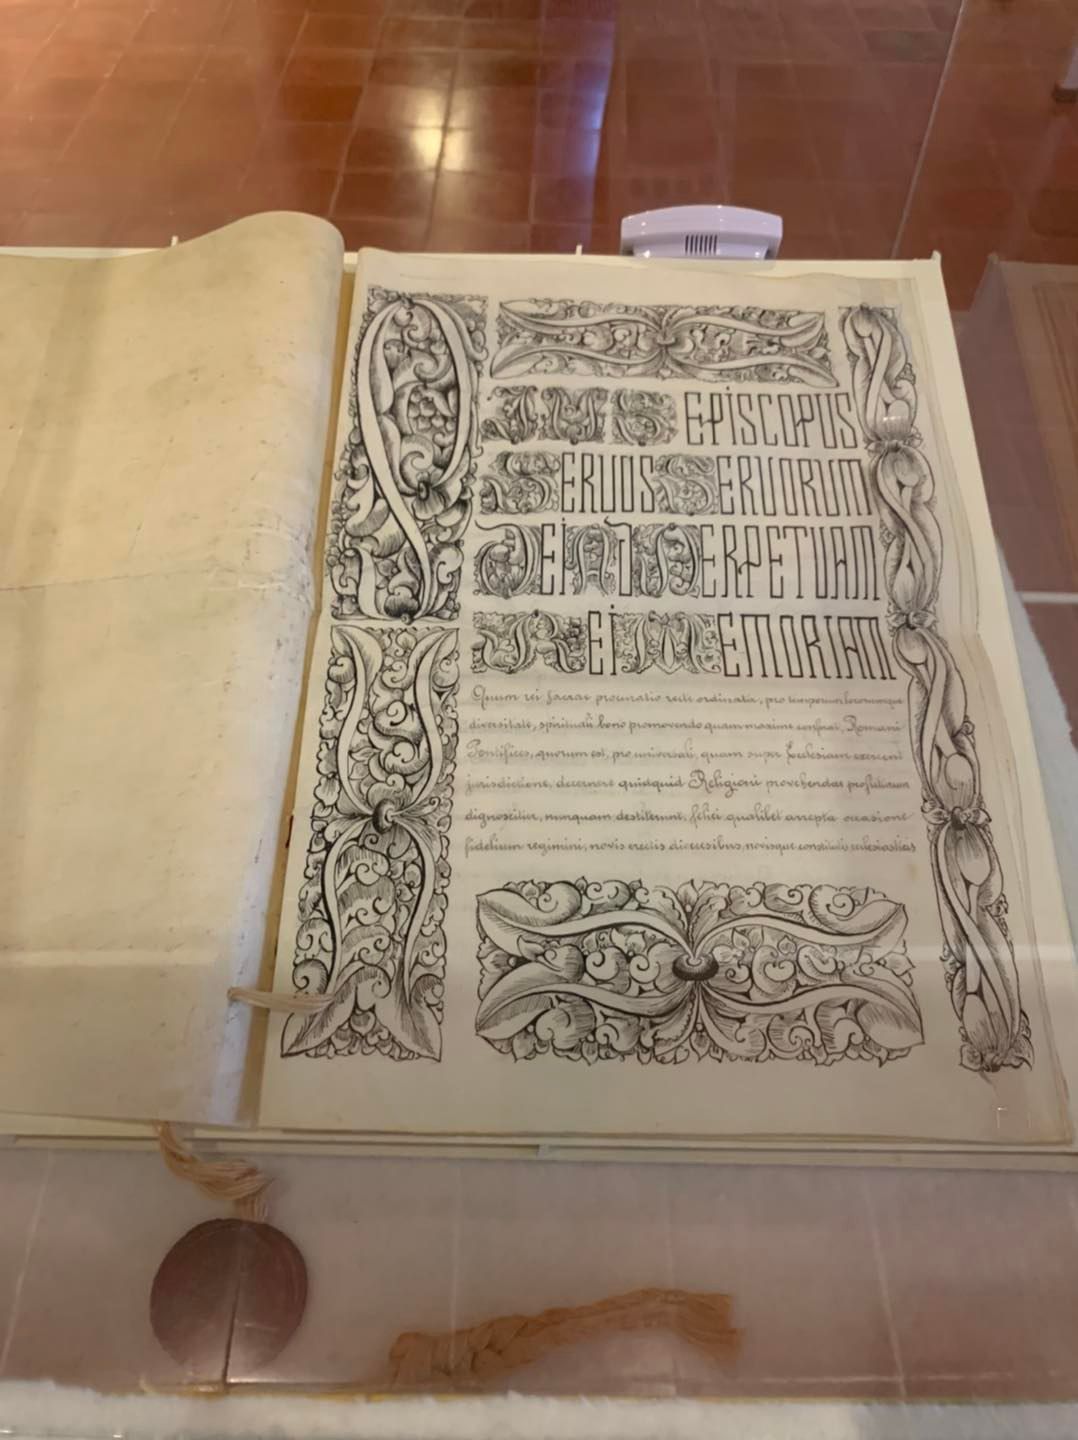 PIUS EPISCOPUS
SERUUS SERUORUM
DEI AD PERPETUAM
REI MEMORIAM
Quum rei sacrae procuratio recte ordinata, pro temporum locorumque
diversitate, spirituali bono promovendo quam maxime conferat, Romani
Pontifices, quorum est, pro universali, quam super Ecclesiam exercent
jurisdictione, decernere quidquid Religioni provehendae profuturum
dignoscitur, nunquam destiterunt, felici qualibet arrepta occasione
fidelium regimini, novis erectis dioecesibus, novisque constitutis ecclesiasticis